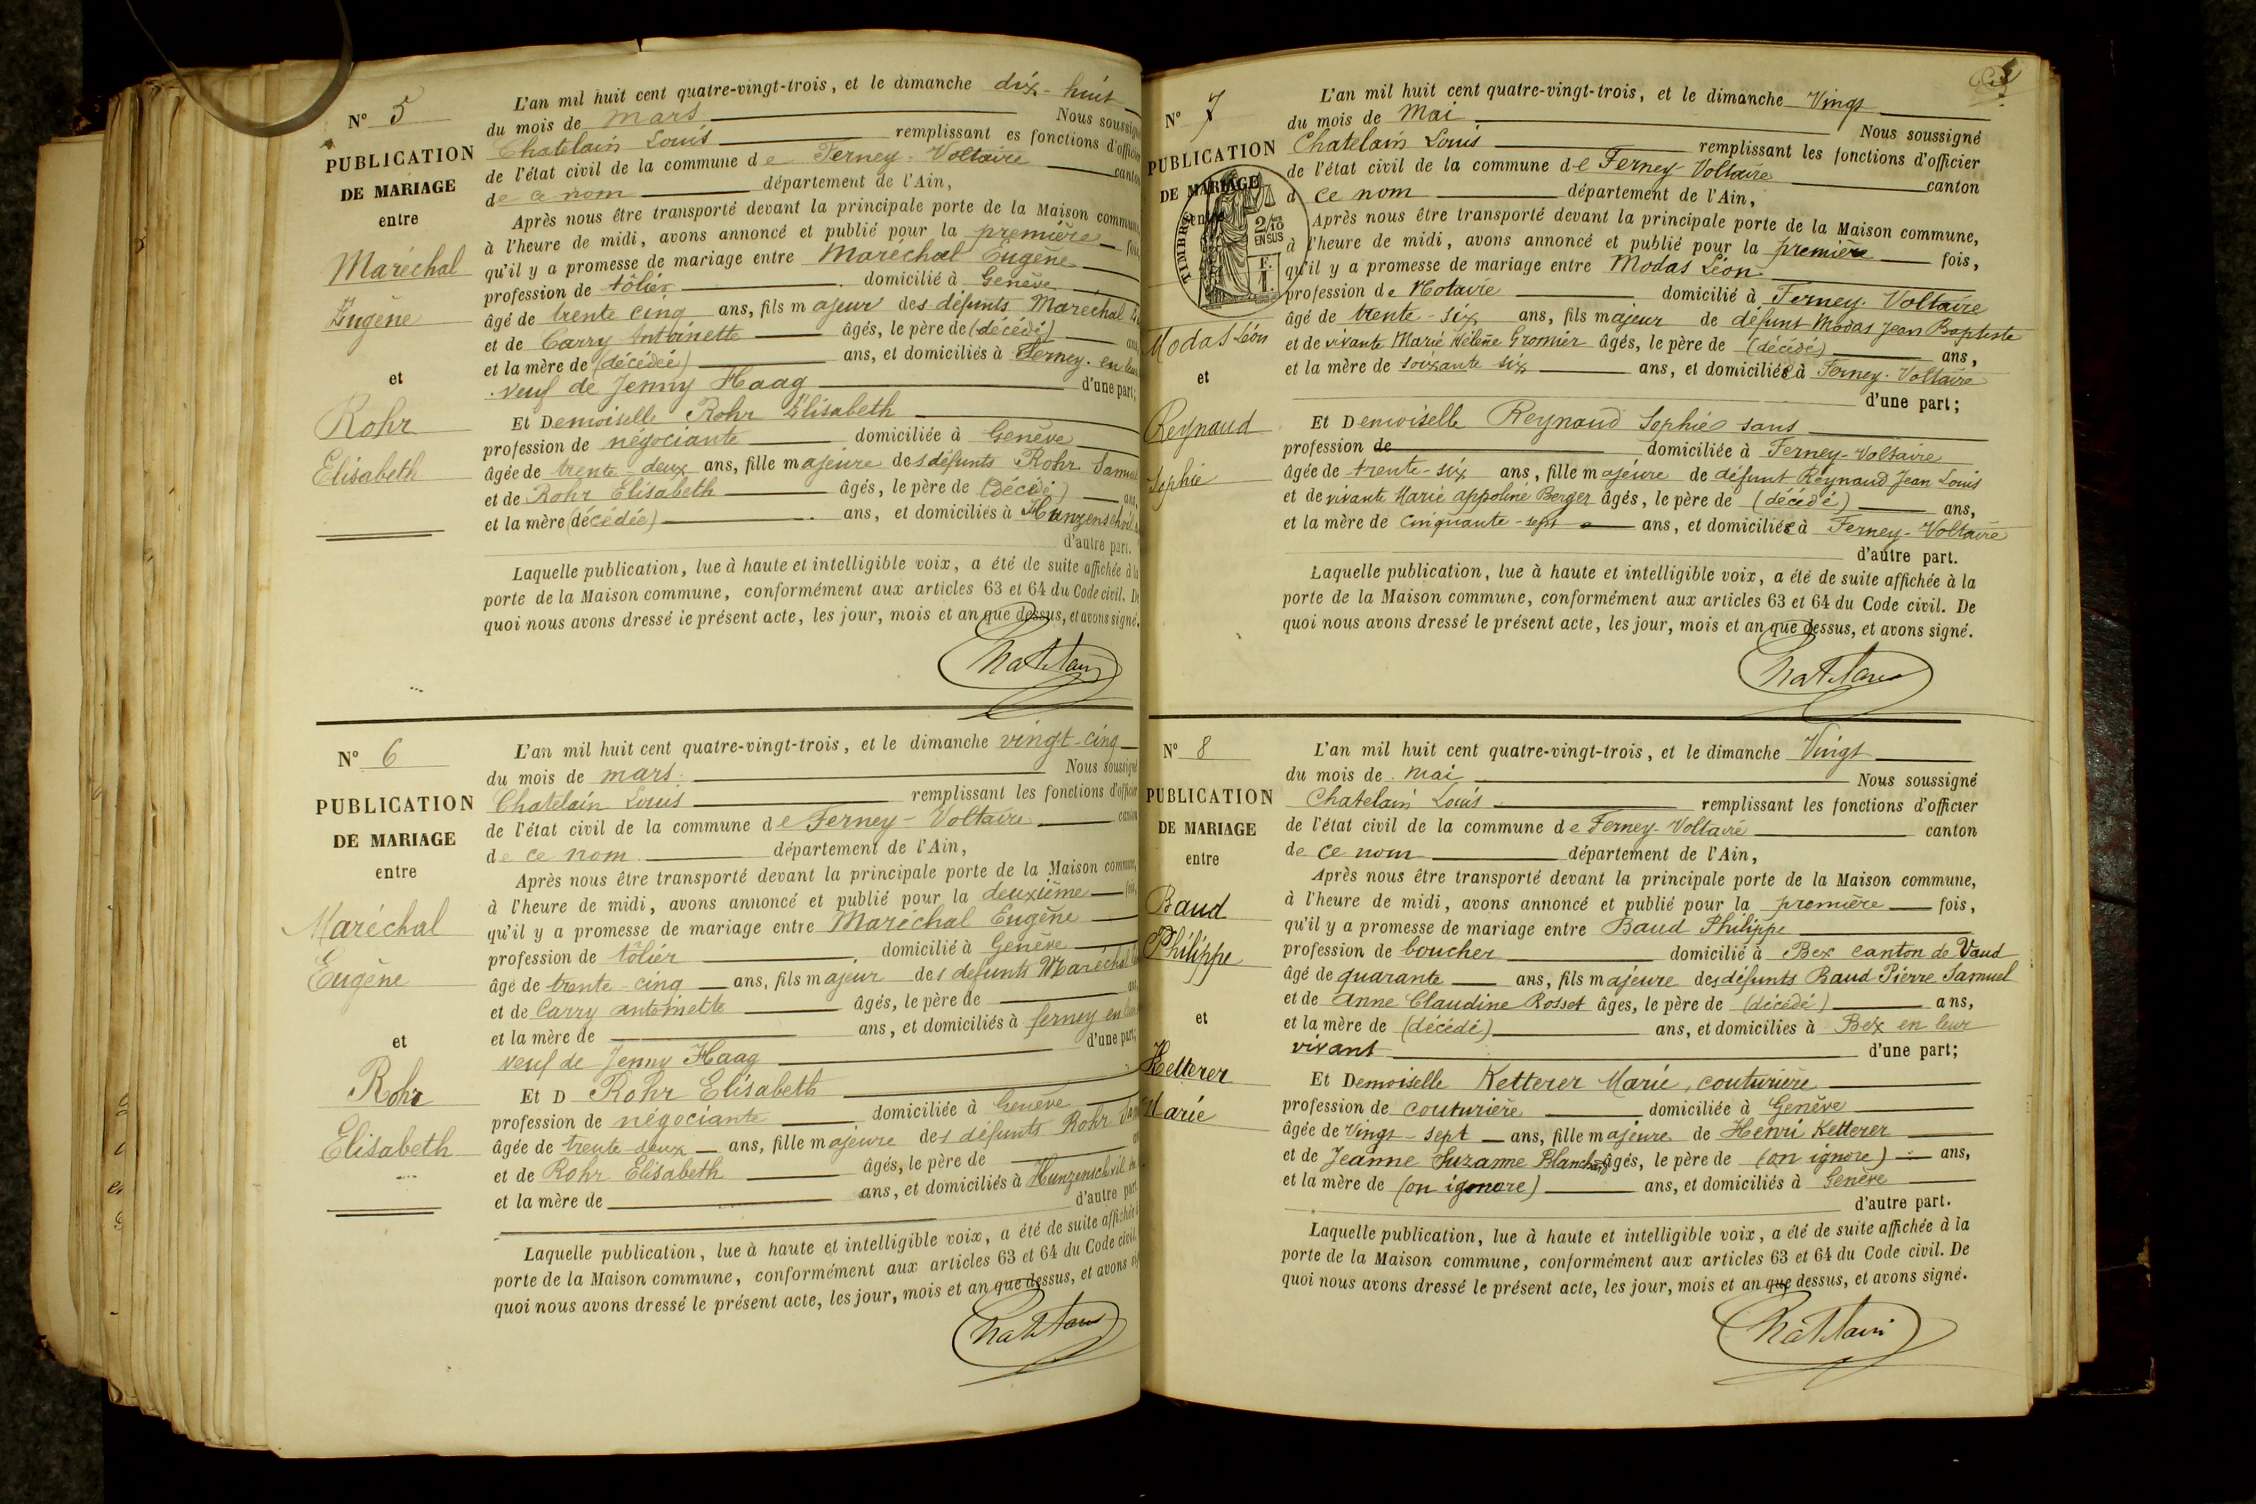 N° 5
PUBLICATION
DE MARIAGE
entre
Maréchal
Eugène
et
Rohr
Elisabeth
L'an mil huit cent quatre-vingt-trois, et le dimanche dix-huit
du mois de mars Nous soussigné
Chatelain Louis remplissant es fonctions d'officier
de l'état civil de la commune de Ferney-Voltaire canton
de ce nom département de l'Ain,
Après nous être transporté devant la principale porte de la Maison commune,
à l'heure de midi, avons annoncé et publié pour la première fois,
qu'il y a promesse de mariage entre Maréchal Eugène
profession de tôlier domicilié à Genève
âgé de trente cinq ans, fils majeur des défunts Maréchal
et de Carry Antoinette âgés, le père de (décédé) ans,
et la mère de (décédée) ans, et domiciliés à Ferney. en leur
veuf de Jenny Haag d'une part;
Et Demoiselle Rohr Elisabeth
profession de négociante domiciliée à Genève
âgée de trente deux ans, fille majeure des défunts Rohr Samuel
et de Rohr Elisabeth âgés, le père de (décédé) ans,
et la mère (décédée) ans, et domiciliés à Hunzenschvil
d'autre part.
Laquelle publication, lue à haute et intelligible voix, a été de suite affichée à la
porte de la Maison commune, conformément aux articles 63 et 64 du Code civil. De
quoi nous avons dressé le présent acte, les jour, mois et an que dessus, et avons signé.
Chatelain
N° 6
PUBLICATION
DE MARIAGE
entre
Maréchal
Eugène
et
Rohr
Elisabeth
L'an mil huit cent quatre-vingt-trois, et le dimanche vingt-cinq
du mois de mars Nous soussigné
Chatelain Louis remplissant les fonctions d'officier
de l'état civil de la commune de Ferney-Voltaire canton
de ce nom département de l'Ain,
Après nous être transporté devant la principale porte de la Maison commune,
à l'heure de midi, avons annoncé et publié pour la deuxième fois,
qu'il y a promesse de mariage entre Maréchal Eugène
profession de tôlier domicilié à Genève
âgé de trente-cinq ans, fils majeur des défunts Maréchal
et de Carry antoinette âgés, le père de ans,
et la mère de ans, et domiciliés à ferney en leur
veuf de Jenny Haag d'une part;
Et D Rohr Elisabeth
profession de négociante domiciliée à Genève
âgée de trente-deux ans, fille majeure des défunts Rohr
et de Rohr Elisabeth âgés, le père de
et la mère de ans, et domiciliés à Hunzenschvil
d'autre part
Laquelle publication, lue à haute et intelligible voix, a été de suite affichée à
porte de la Maison commune, conformément aux articles 63 et 64 du Code civil.
quoi nous avons dressé le présent acte, les jour, mois et an que dessus, et avons
Chatelain
N° 7
PUBLICATION
DE MARIAGE
entre
TIMBRE
2/10
EN SUS
Modas Léon
et
Reynaud
Sophie
L'an mil huit cent quatre-vingt-trois, et le dimanche Vingt
du mois de Mai Nous soussigné
Chatelain Louis remplissant les fonctions d'officier
de l'état civil de la commune de Ferney Voltaire canton
d ce nom département de l'Ain,
Après nous être transporté devant la principale porte de la Maison commune,
à l'heure de midi, avons annoncé et publié pour la première fois,
qu'il y a promesse de mariage entre Modas Léon
profession de Notaire domicilié à Ferney. Voltaire
âgé de trente-six ans, fils majeur de défunt Modas Jean Baptiste
et de vivante Marie Hélène Gromier âgés, le père de (décédé) ans,
et la mère de soixante six ans, et domiciliés à Ferney. Voltaire
d'une part;
Et Demoiselle Reynaud Sophie sans
profession de domiciliée à Ferney-Voltaire
âgée de trente-six ans, fille majeure de défunt Reynaud Jean Louis
et de vivante Marie appoline Berger âgés, le père de (décédé) ans,
et la mère de cinquante-sept ans, et domiciliés à Ferney-Voltaire
d'autre part.
Laquelle publication, lue à haute et intelligible voix, a été de suite affichée à la
porte de la Maison commune, conformément aux articles 63 et 64 du Code civil. De
quoi nous avons dressé le présent acte, les jour, mois et an que dessus, et avons signé.
Chatelain
N° 8
PUBLICATION
DE MARIAGE
entre
Baud
Philippe
et
Ketterer
Marie
L'an mil huit cent quatre-vingt-trois, et le dimanche Vingt
du mois de mai Nous soussigné
Chatelain Louis remplissant les fonctions d'officier
de l'état civil de la commune de Ferney-Voltaire canton
de ce nom département de l'Ain,
Après nous être transporté devant la principale porte de la Maison commune,
à l'heure de midi, avons annoncé et publié pour la première fois,
qu'il y a promesse de mariage entre Baud Philippe
profession de boucher domicilié à Bex canton de Vaud
âgé de quarante ans, fils majeure des défunts Baud Pierre Samuel
et de Anne Claudine Rosset âgés, le père de (décédé) ans,
et la mère de (décédé) ans, et domiciliés à Bex en leur
vivant d'une part;
Et Demoiselle Ketterer Marie, couturière
profession de couturière domiciliée à Genève
âgée de Vingt-sept ans, fille majeure de Henri Ketterer
et de Jeanne Suzanne Blanchet âgés, le père de (on ignore) ans,
et la mère de (on igonore) ans, et domiciliés à Genève
d'autre part.
Laquelle publication, lue à haute et intelligible voix, a été de suite affichée à la
porte de la Maison commune, conformément aux articles 63 et 64 du Code civil. De
quoi nous avons dressé le présent acte, les jour, mois et an que dessus, et avons signé.
Chatelain